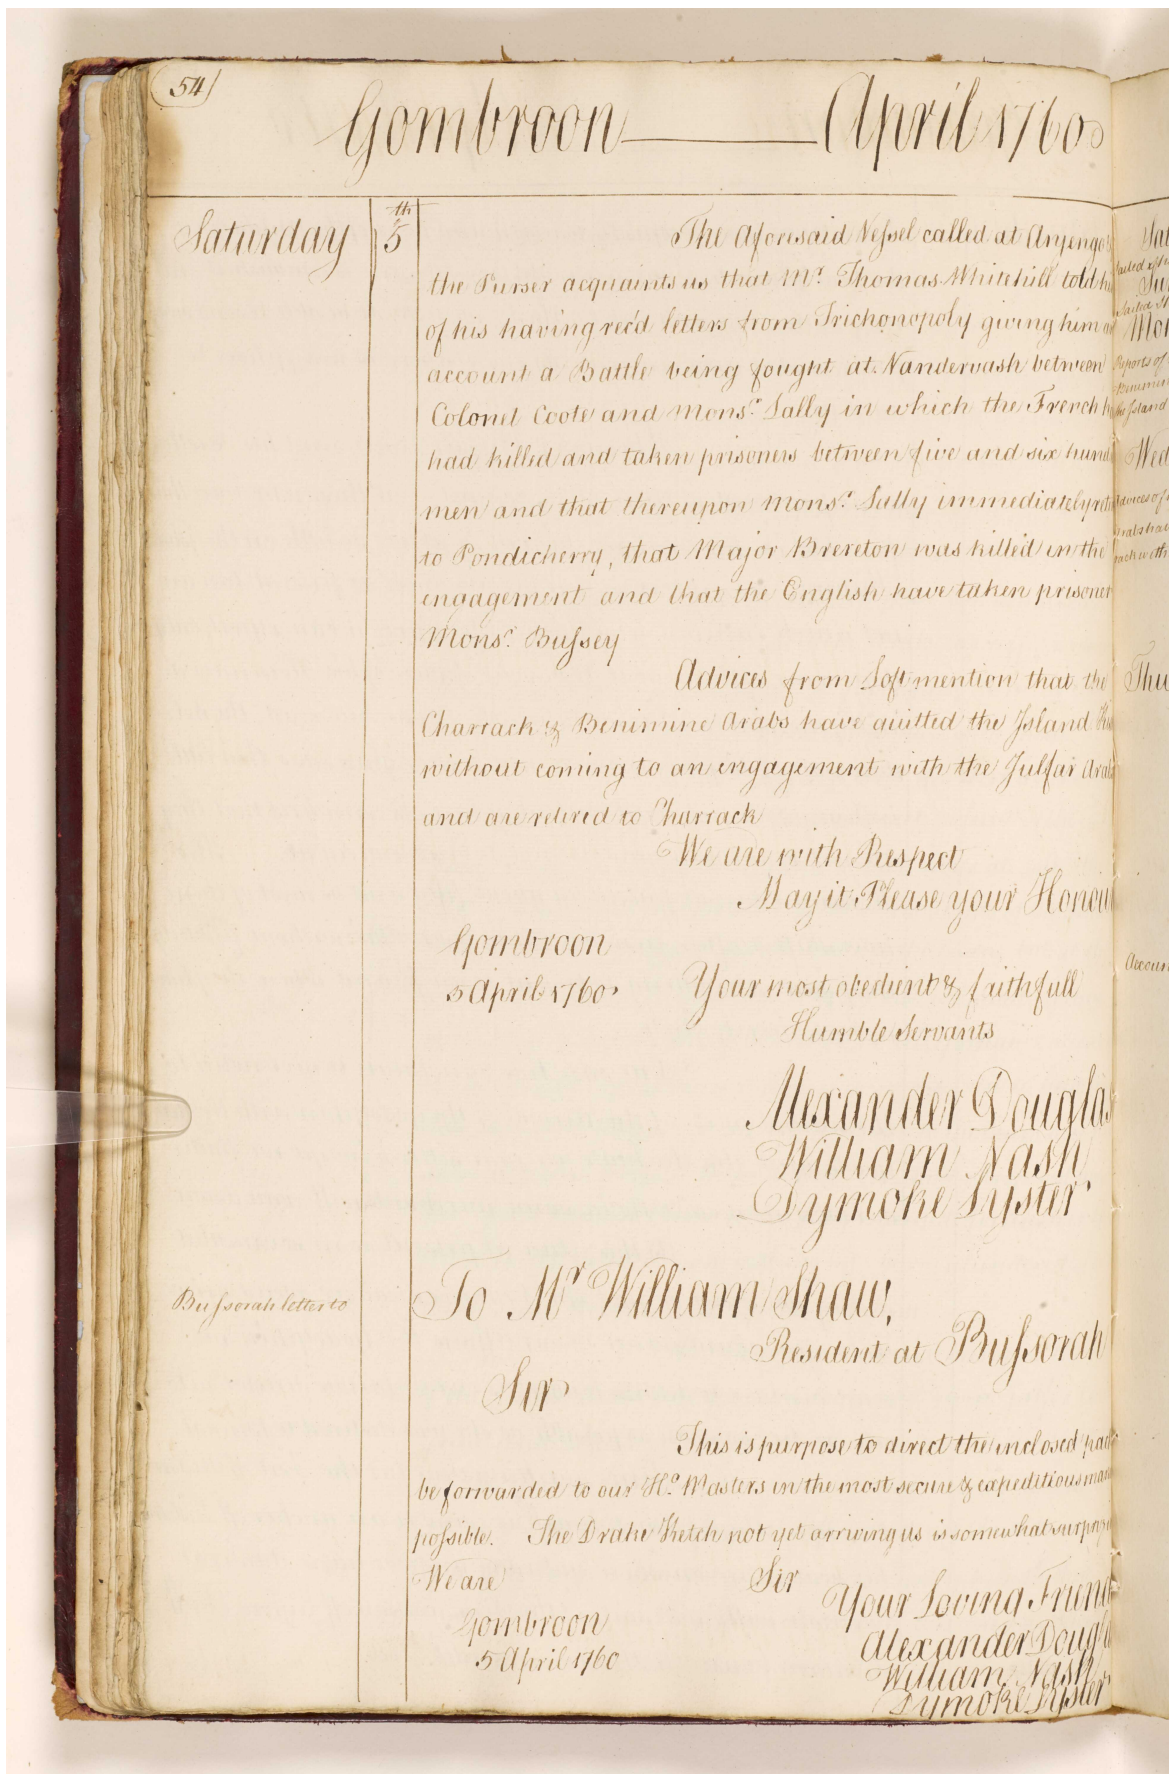 54
Gombroon April 1760
Saturday 5th
The Aforesaid Vessel called at Anjengo
the Purser acquaints us that Mr. Thomas Whitehill told
of his having rec'd letters from Trichonopoly giving him
account a Battle being fought at Vandervash between
Colonel Coote and Monsr. Lally in which the French
had killed and taken prisoners between five and six hund
men and that thereupon Monsr. Lally immediately
to Pondicherry, that Major Brereton was killed in the
engagement and that the English have taken prisoner
Monsr. Bussey
Advices from Loft mention that the
Charrack & Benimine Arabs have quitted the Island
without coming to an engagement with the Julfar Arab
and are retired to Charrack
We are with Respect
May it Please your Honour
Gombroon
5 April 1760
Your most obedient & faithfull
Humble Servants
Alexander Douglas
William Nash
Dymoke Lyster
Bussorah letter to
To Mr William Shaw,
Resident at Bussorah
Sir
This is purpose to direct the inclosed
be forwarded to our Ho. Masters in the most secure & expeditious
possible. The Drake Ketch not yet arriving us is somewhat
We are
Sir
Your Loving Friend
Gombroon
5 April 1760
Alexander Dougla
William Nash
Dymoke Lyster